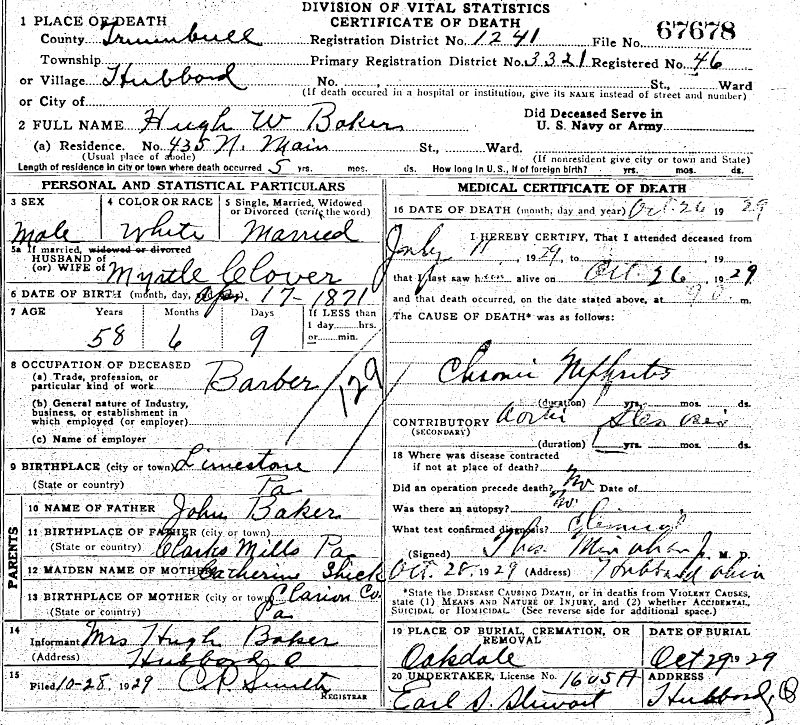 DIVISION OF VITAL STATISTICS
CERTIFICATE OF DEATH
1 PLACE OF DEATH
County Trumbull Registration District No. 1241 File No. 67678
Township Primary Registration District No. 3321 Registered No. 46
or Village Hubbard No. St., Ward
(If death occured in a hospital or institution, give its NAME instead of street and number)
or City of
2 FULL NAME Hugh W Baker Did Deceased Serve in U. S. Navy or Army
(a) Residence. No. 435 N. Main St., Ward.
(Usual place of abode) (If nonresident give city or town and State)
Length of residence in city or town where death occurred 5 yrs. mos. ds. How long in U. S., If of foreign birth? yrs. mos. ds.
PERSONAL AND STATISTICAL PARTICULARS
3 SEX
Male
4 COLOR OR RACE
White
5 Single, Married, Widowed
or Divorced (write the word)
Married
5a If married, widowed or divorced
HUSBAND of
(or) WIFE of Myrtle Clover
6 DATE OF BIRTH (month, day, and year) Apr. 17-1871
7 AGE Years Months Days If LESS than
1 day......hrs.
or......min.
58 6 9
8 OCCUPATION OF DECEASED
(a) Trade, profession, or
particular kind of work Barber
129
(b) General nature of Industry,
business, or establishment in
which employed (or employer)
(c) Name of employer
9 BIRTHPLACE (city or town) Limestone
(State or country) Pa
PARENTS
10 NAME OF FATHER John Baker
11 BIRTHPLACE OF FATHER (city or town)
(State or country) Clarks Mills Pa
12 MAIDEN NAME OF MOTHER Catherine Shick
13 BIRTHPLACE OF MOTHER (city or town) Clarion Co.
(State or country) Pa
14
Informant Mrs Hugh Baker
(Address) Hubbard O
15
Filed 10-28, 1929 C.R. Smith
REGISTRAR
MEDICAL CERTIFICATE OF DEATH
16 DATE OF DEATH (month, day and year) Oct 26 1929
I HEREBY CERTIFY, That I attended deceased from
July 11, 1929, to 19
that I last saw him alive on Oct 26 1929
and that death occurred, on the date stated above, at m.
The CAUSE OF DEATH* was as follows:
Chronic Nephritis
(duration) yrs. mos. ds.
CONTRIBUTORY Aortic Stenosis
(SECONDARY)
(duration) yrs. mos. ds.
18 Where was disease contracted
if not at place of death?
Did an operation precede death? No Date of
Was there an autopsy? No
What test confirmed diagnosis? Clinical
(Signed) Thos. M. D.
Oct. 28, 1929 (Address) Hubbard Ohio
*State the DISEASE CAUSING DEATH, or in deaths from VIOLENT CAUSES,
state (1) MEANS AND NATURE OF INJURY, and (2) whether ACCIDENTAL,
SUICIDAL or HOMICIDAL. (See reverse side for additional space.)
19 PLACE OF BURIAL, CREMATION, OR
REMOVAL
Oakdale
DATE OF BURIAL
Oct 29 1929
20 UNDERTAKER, License No. 1605A
Earl S. Stewart
ADDRESS
Hubbard, O